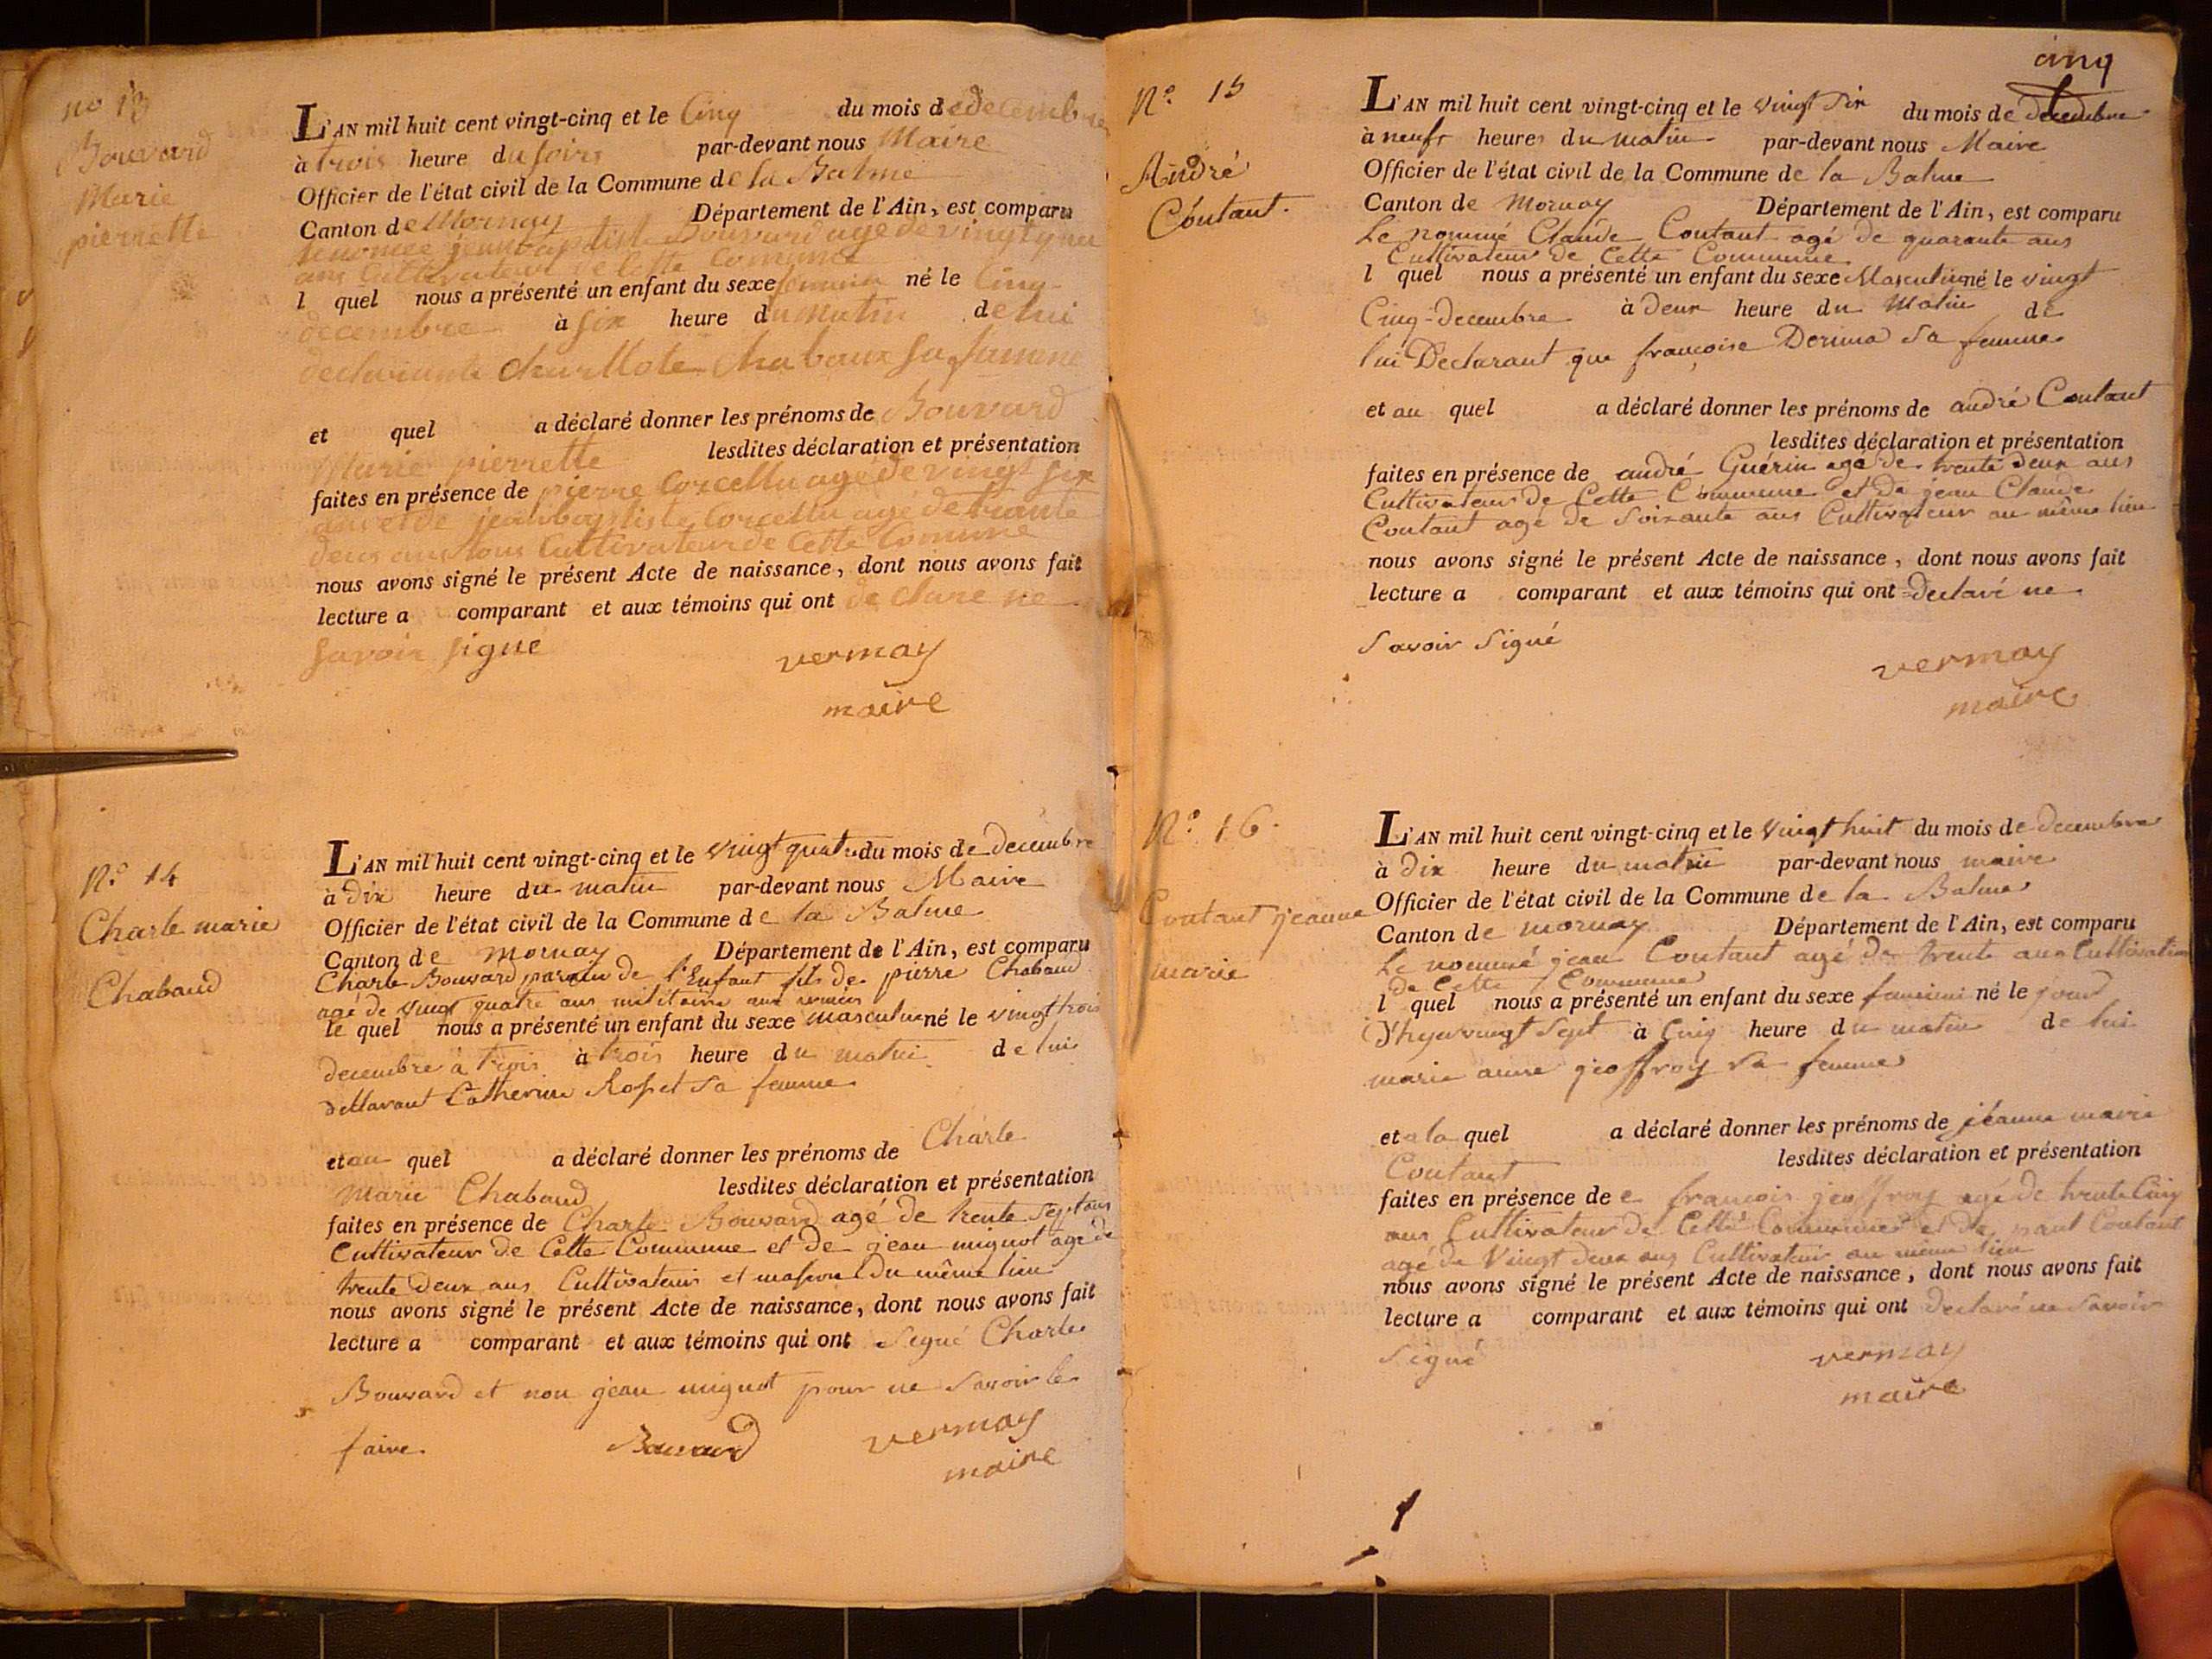 no 13
Bouvard
Marie
pierrette
L'AN mil huit cent vingt-cinq et le Cinq du mois de decembre
à trois heure du soirs par-devant nous Maire
Officier de l'état civil de la Commune de la Balme
Canton de Mornay Département de l'Ain, est comparu
jean baptiste Bouvard agé de vingt
ans Cultivateur de Cette Comune
l quel nous a présenté un enfant du sexe feminin né le Cinq
decembre à six heure du Matin de lui
declarante charllote chabaux sa famme
et quel a déclaré donner les prénoms de Bouvard
Marie pierrette lesdites déclaration et présentation
faites en présence de pierre Corcellu agé de vingt six
ans et de jean baptiste Corcellu agé de trante
deus ans tous Cultivateur de Cette Comune
nous avons signé le présent Acte de naissance, dont nous avons fait
lecture a comparant et aux témoins qui ont de clare ne
savoir signé
vermay
maire
N.o 14
Charle marie
Chabaud
L'AN mil huit cent vingt-cinq et le vingt quatre du mois de decembre
à dix heure du matin par-devant nous Maire
Officier de l'état civil de la Commune de la Balme
Canton de mornay Département de l'Ain, est comparu
Charle Bouvard parain de l'Enfant fils de pierre Chabaud
agé de vingt quatre ans militaire aux
le quel nous a présenté un enfant du sexe masculin né le vingt trois
decembre à trois à trois heure du matin de lui
dellarant Catherine Rosset sa femme
et au quel a déclaré donner les prénoms de Charle
Marie Chabaud lesdites déclaration et présentation
faites en présence de Charle Bouvard agé de trente sept ans
Cultivateur de Cette Commune et de jean mignot agé de
trente deux ans Cultivateur et masson du même lieu
nous avons signé le présent Acte de naissance, dont nous avons fait
lecture a comparant et aux témoins qui ont signé Charle
Bouvard et non jean mignot pour ne savoir le
faire. Bouvard vermay
maire
cinq
N.o 15
André
Coutant.
L'AN mil huit cent vingt-cinq et le vingt six du mois de decembre
à neufs heures du matin par-devant nous Maire
Officier de l'état civil de la Commune de la Balme
Canton de Mornay Département de l'Ain, est comparu
Le nommé Claude Coutant agé de quarante ans
Cultivateur de Cette Commune
l quel nous a présenté un enfant du sexe Masculin né le vingt
Cinq decembre à deux heure du Matin de
lui Declarant que françoise Derima sa femme
et au quel a déclaré donner les prénoms de andré Coutant
lesdites déclaration et présentation
faites en présence de andré Guérin agé de trente deux ans
Cultivateur de Cette Commune et de jean Claude
Coutant agé de soixante ans Cultivateur au même lieu
nous avons signé le présent Acte de naissance, dont nous avons fait
lecture a comparant et aux témoins qui ont declaré ne
savoir signé
vermay
maire
N.o 16.
Coutant jeanne
marie
L'AN mil huit cent vingt-cinq et le vingt huit du mois de decembre
à dix heure du matin par-devant nous maire
Officier de l'état civil de la Commune de la Balme
Canton de mornay Département de l'Ain, est comparu
Le nommé jean Coutant agé de trente ans Cultivateur
de Cette Commune
l quel nous a présenté un enfant du sexe feminin né le jour
d'hyer vingt sept à Cinq heure du matin de lui
marie anne geoffroy sa femme
et a la quel a déclaré donner les prénoms de jeanne marie
Coutant lesdites déclaration et présentation
faites en présence de e françois geoffroy agé de trente Cinq
ans Cultivateur de Cette Commune et de paul Coutant
agé de Vingt deux ans Cultivateur au même lieu
nous avons signé le présent Acte de naissance, dont nous avons fait
lecture a comparant et aux témoins qui ont declaré ne savoir
signé
vermay
maire